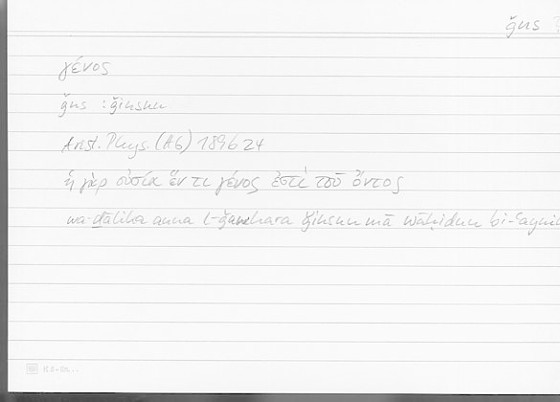 ǧns
γένος
ǧns : ǧinsun
Arist. Phys. (A6) 189b24
ἡ γὰρ οὐσία ἕν τι γένος ἐστὶ τοῦ ὄντος
wa-ḏālika anna l-ǧauhara ǧinsun mā wāḥidun